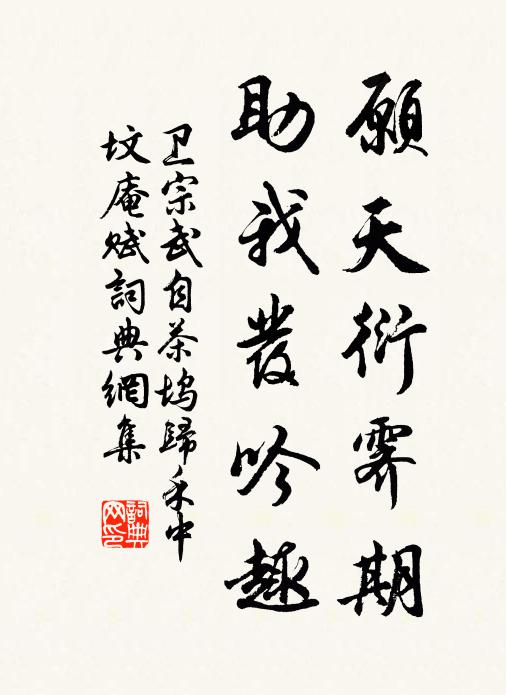 願天衍霁期
助我發吟趣
卫宗武自茶坞歸禾中
坟庵赋詞典網集
詞典
网印